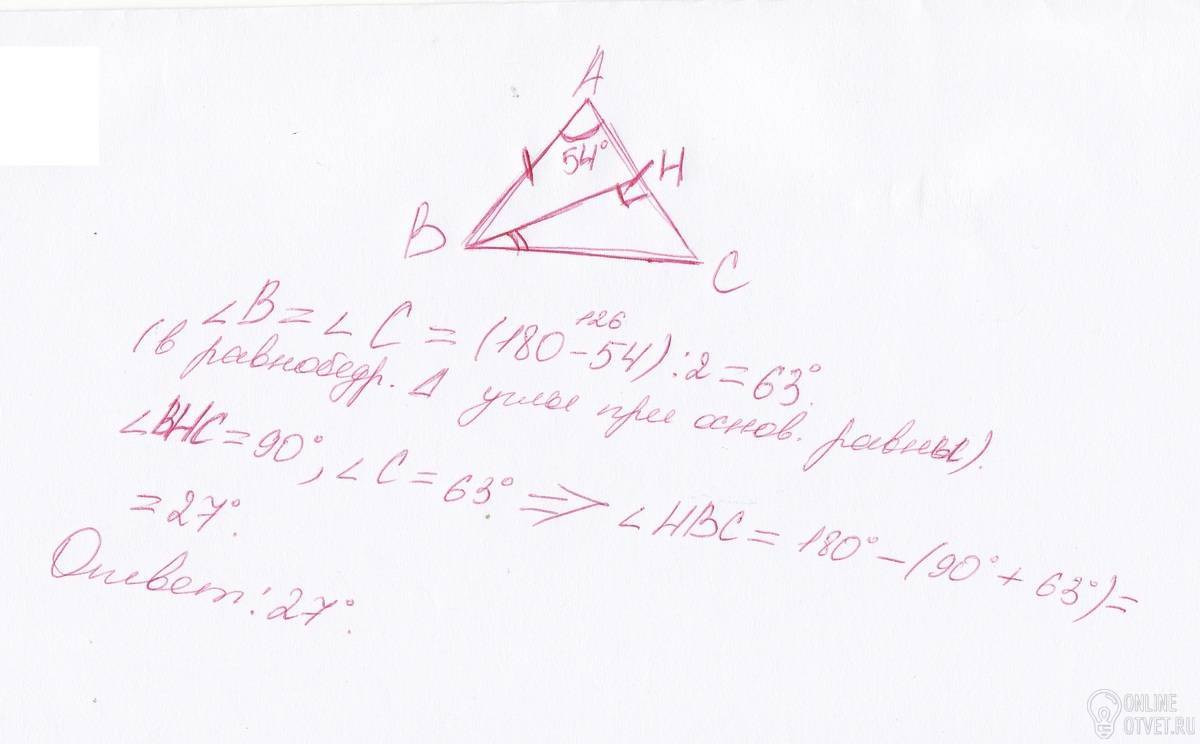 A
54°
H
B
C
126
∠B = ∠C = (180 - 54) : 2 = 63°.
(в равнобедр. Δ углы при основ. равны).
∠BHC = 90°, ∠C = 63° ⇒ ∠HBC = 180° - (90° + 63°) =
= 27°.
Ответ: 27°.
ONLINE
OTVET.RU